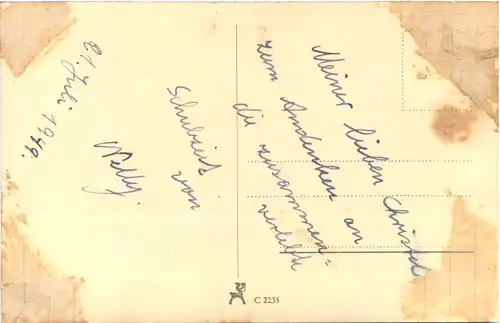 Meiner lieben Christel
zum Andenken an
die zusammen=
verlebte
Schulzeit von
Nelly.
21. Juli 1949.
C 2235